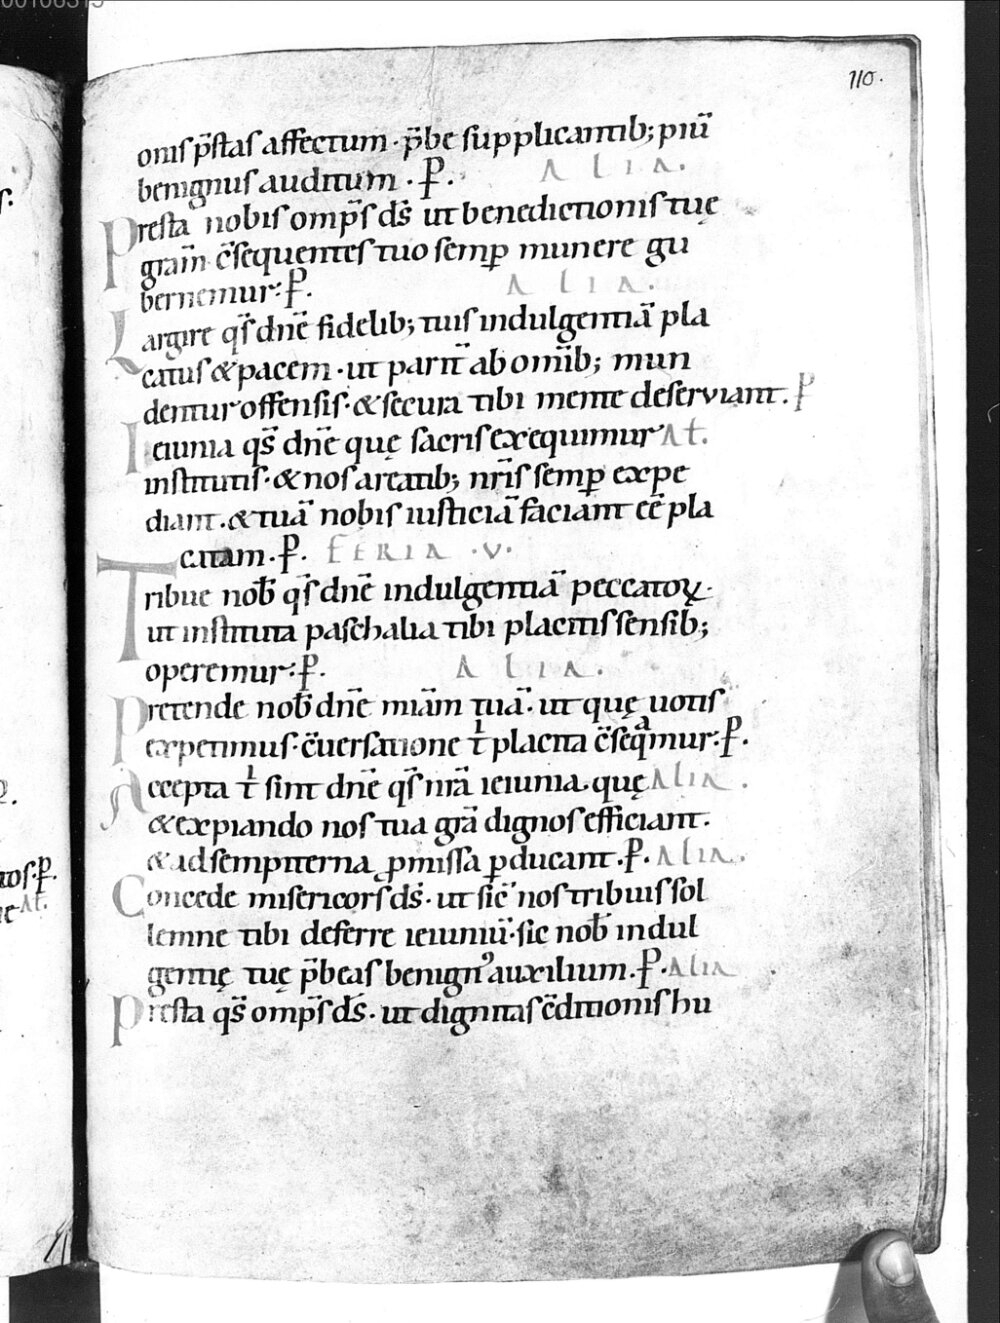 110.
onis p̄stas affectum · p̄be supplicantib; piū
benignus auditum · P̱. ALIA.
Presta nobis omp̄s ds̄ ut benedictionis tuę
gratiā c̄sequentes tuo semp̱ munere gu
bernemur: P̱. ALIA.
Largire qs̄ dnē fidelib; tuis indulgentiā pla
catus & pacem · ut parit̄ ab omīb; mun
dentur offensis · & secura tibi mente deserviant. P̱
Ieiunia qs̄ dnē quę sacris exequimur At.
institutis · & nos a reatib; nr̄is semp̱ expe
diant. & tuā nobis iusticiā faciant eē pla
catam. P̱. FERIA · V ·
Tribue nob̄ qs̄ dnē indulgentiā peccatoꝝ ·
ut instituta paschalia tibi placitis sensib;
operemur: P̱. ALIA.
Pretende nob̄ dnē miām tuā · ut quę uotis
expetimus · c̄uersatione tͥ placita c̄seqͣmur: P̱.
Accepta tͥ sint dnē qs̄ nr̄a ieiunia · quę ALIA.
& expiando nos tua grā dignos efficiant.
& ad sempiterna p̱missa p̱ducant. P̱. ALIA.
Concede misericors ds̄ · ut sic̄ nos tribuis sol
lemne tibi deferre ieiuniū · sic nob̄ indul
gentię tuę p̄beas benignꝰ auxilium. P̱. ALIA
Presta qs̄ omp̄s ds̄ · ut dignitas c̄ditionis hu